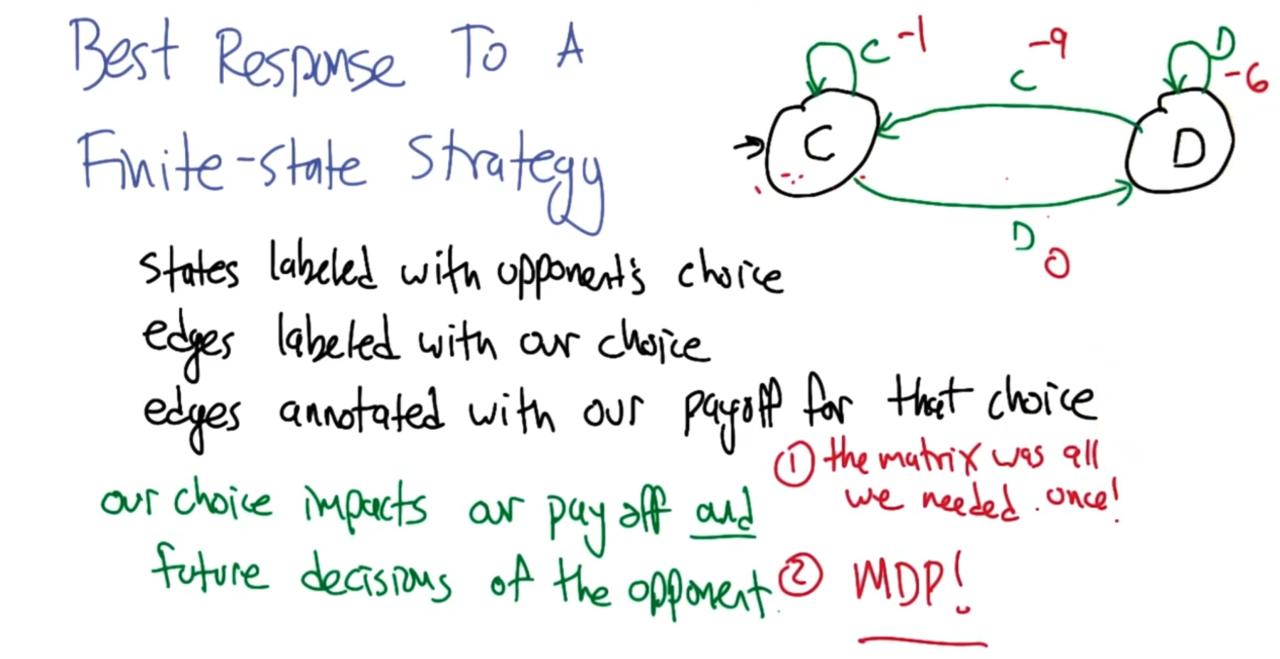 Best Response To A
Finite-state Strategy
C -1
-9
C
D
-6
C
D
D
0
states labeled with opponent's choice
edges labeled with our choice
edges annotated with our payoff for that choice
① the matrix was all
we needed. once!
our choice impacts our payoff and
future decisions of the opponent.
② MDP!